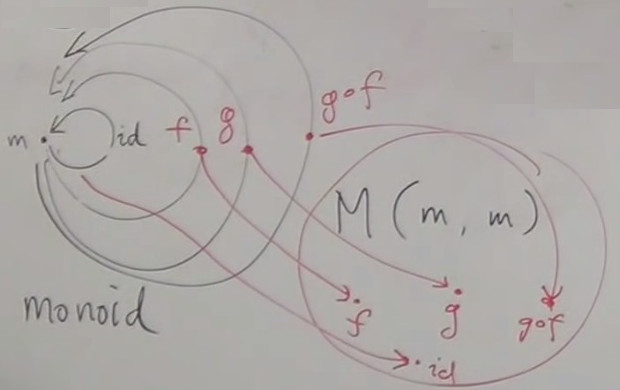 g∘f
m id f g
M(m, m)
monoid
f g g∘f
id